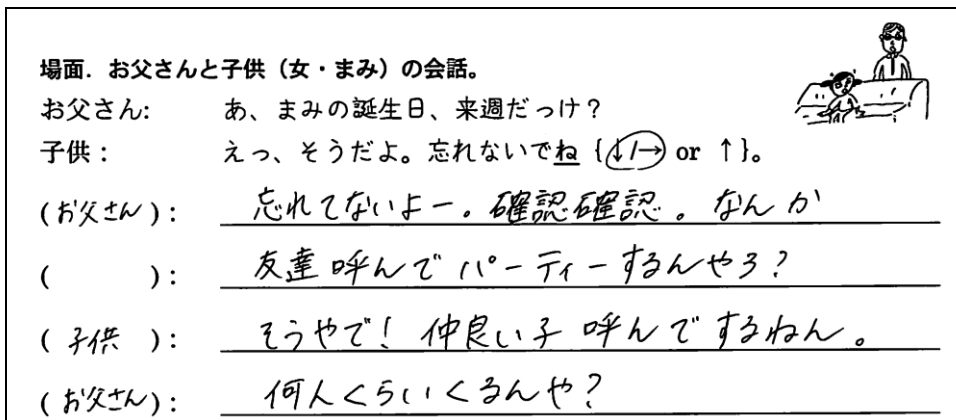 場面．お父さんと子供（女・まみ）の会話。
お父さん: あ、まみの誕生日、来週だっけ？
子供： えっ、そうだよ。忘れないでね {↓/→ or ↑}。
(お父さん)： 忘れてないよー。確認確認。なんか
(　　　)： 友達呼んでパーティーするんやろ？
(子供)： そうやで！仲良い子呼んでするねん。
(お父さん)： 何人くらいくるんや？